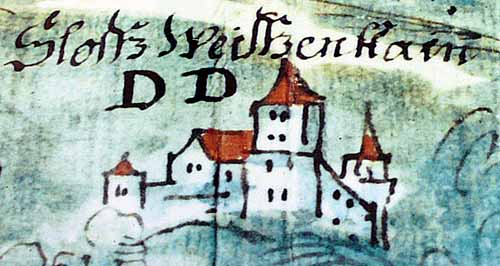 Sloſſz Weiſſzenſtain
D D